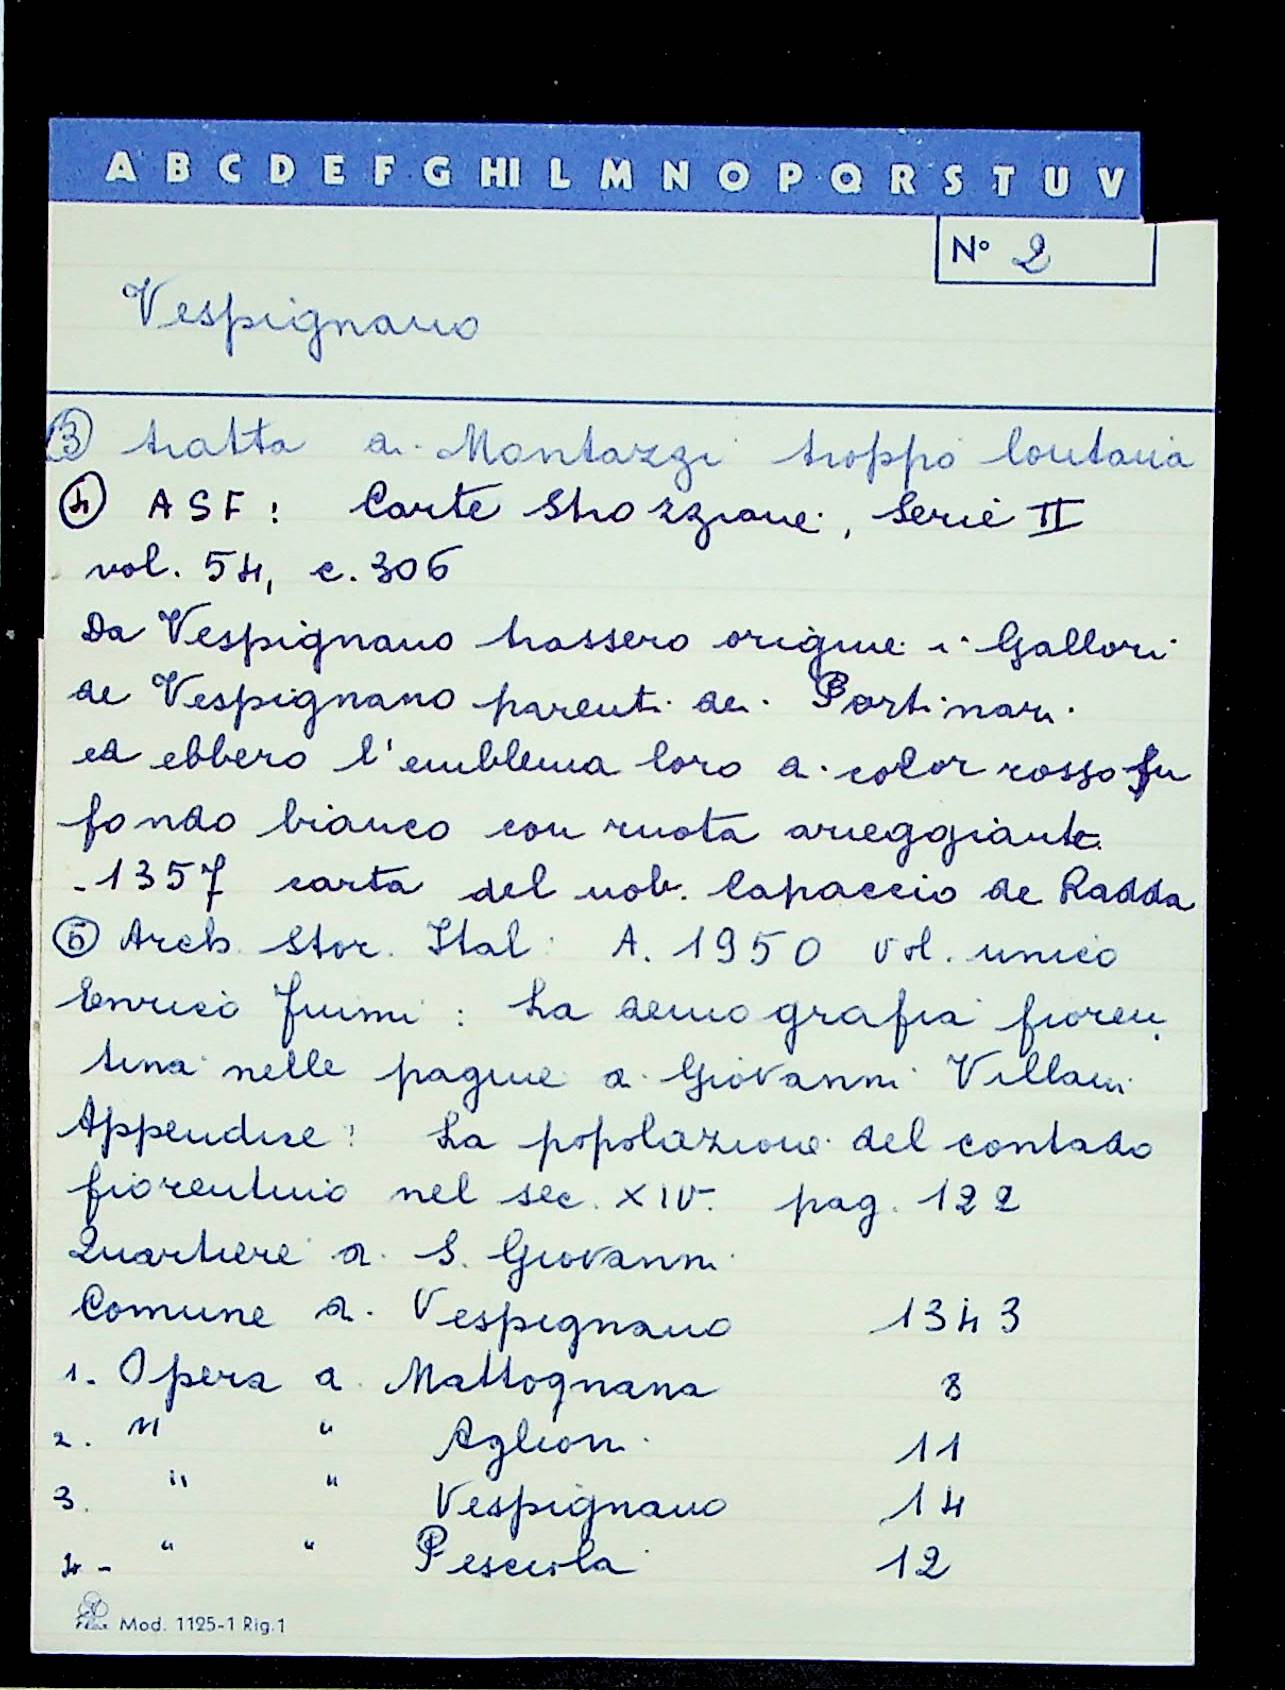 A B C D E F G HI L M N O P Q R S T U V
N° 2
Vespignano
③ tratta di Montazzi troppo lontana
④ ASF: Carte Strozziane, Serie II
vol. 54, c. 306
Da Vespignano trassero origine i Gallori
de Vespignano parenti dei Portinari
ed ebbero l'emblema loro di color rosso su
fondo bianco con ruota arieggiante.
-1357 carta del nob. Capaccio de Radda
⑤ Arch. Stor. Ital. A. 1950 vol. unico
Enrico Fiumi: La demografia fioren
tina nelle pagine di Giovanni Villani
Appendice: La popolazione del contado
fiorentino nel sec. XIV. pag. 122
Quartiere di S. Giovanni
Comune di Vespignano 1343
1. Opera di Mattognana 8
2. " " Aglioni 11
3. " " Vespignano 14
4- " " Pesciola 12
Mod. 1125-1 Rig.1